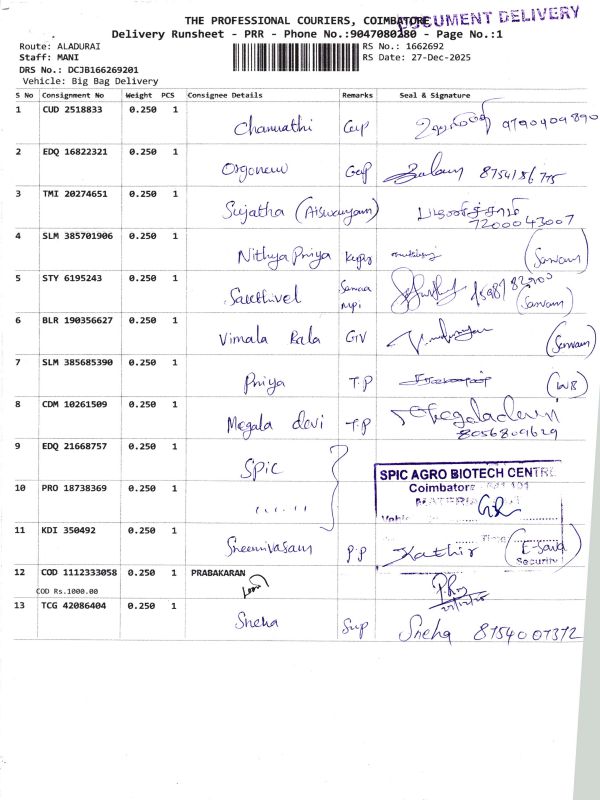 THE PROFESSIONAL COURIERS, COIMBATORE
DOCUMENT DELIVERY
Delivery Runsheet - PRR - Phone No.:9047080280 - Page No.:1
Route: ALADURAI
RS No.: 1662692
Staff: MANI
RS Date: 27-Dec-2025
DRS No.: DCJB166269201
Vehicle: Big Bag Delivery
S No Consignment No Weight PCS Consignee Details Remarks Seal & Signature
1 CUD 2518833 0.250 1
2 EDQ 16822321 0.250 1
8754186775
3 TMI 20274651 0.250 1 Sujatha
7200043007
4 SLM 385701906 0.250 1 Nithya Priya
5 STY 6195243 0.250 1 Sakthivel
6 BLR 190356627 0.250 1 Vimala Bala
7 SLM 385685390 0.250 1 Priya T.P
8 CDM 10261509 0.250 1 Megala devi T.P Megaladevi
8056809629
9 EDQ 21668757 0.250 1 SPIC
SPIC AGRO BIOTECH CENTRE
Coimbatore
10 PRO 18738369 0.250 1 ,, ,, ,,
11 KDI 350492 0.250 1 Sreenivasam P.P Kathir
Security
12 COD 1112333058 0.250 1 PRABAKARAN
COD Rs.1000.00
27/12/25
13 TCG 42086404 0.250 1 Sneha Sup Sneha 8754007372